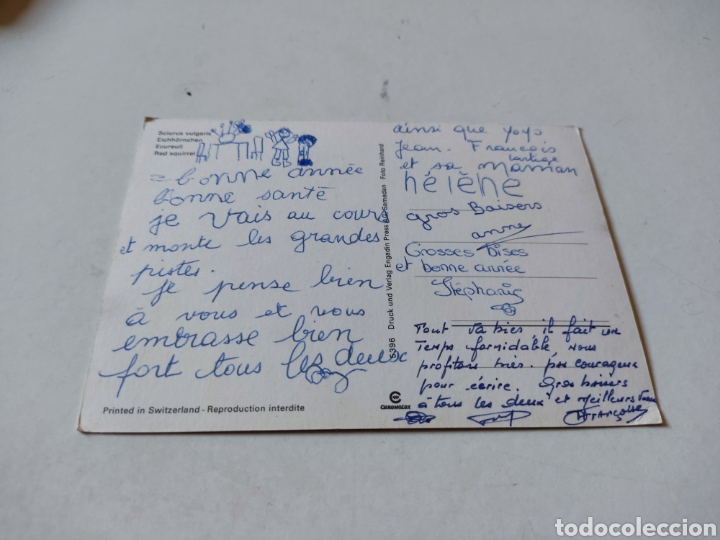 Sciurus vulgaris
Eichhörnchen
Ecureuil
Red squirrel
= bonne année
bonne santé
je vais au cours
et monte les grandes
pistes.
je pense bien
à vous et vous
embrasse bien
fort tous les deux
Printed in Switzerland - Reproduction interdite
Druck und Verlag Engadin Press Samedan Foto Reinhard
CHROMOCOX
ainsi que yoyo
Jean. François
et sa Maman
hélène
gros Baisers
anne
Grosses bises
et bonne année
Stéphanie
Tout va bien il fait un
Temps formidable, nous
profitons bien. pas courageux
pour écrire. Gros baisers
à tous les deux et meilleurs vœux
Françoise
todocoleccion